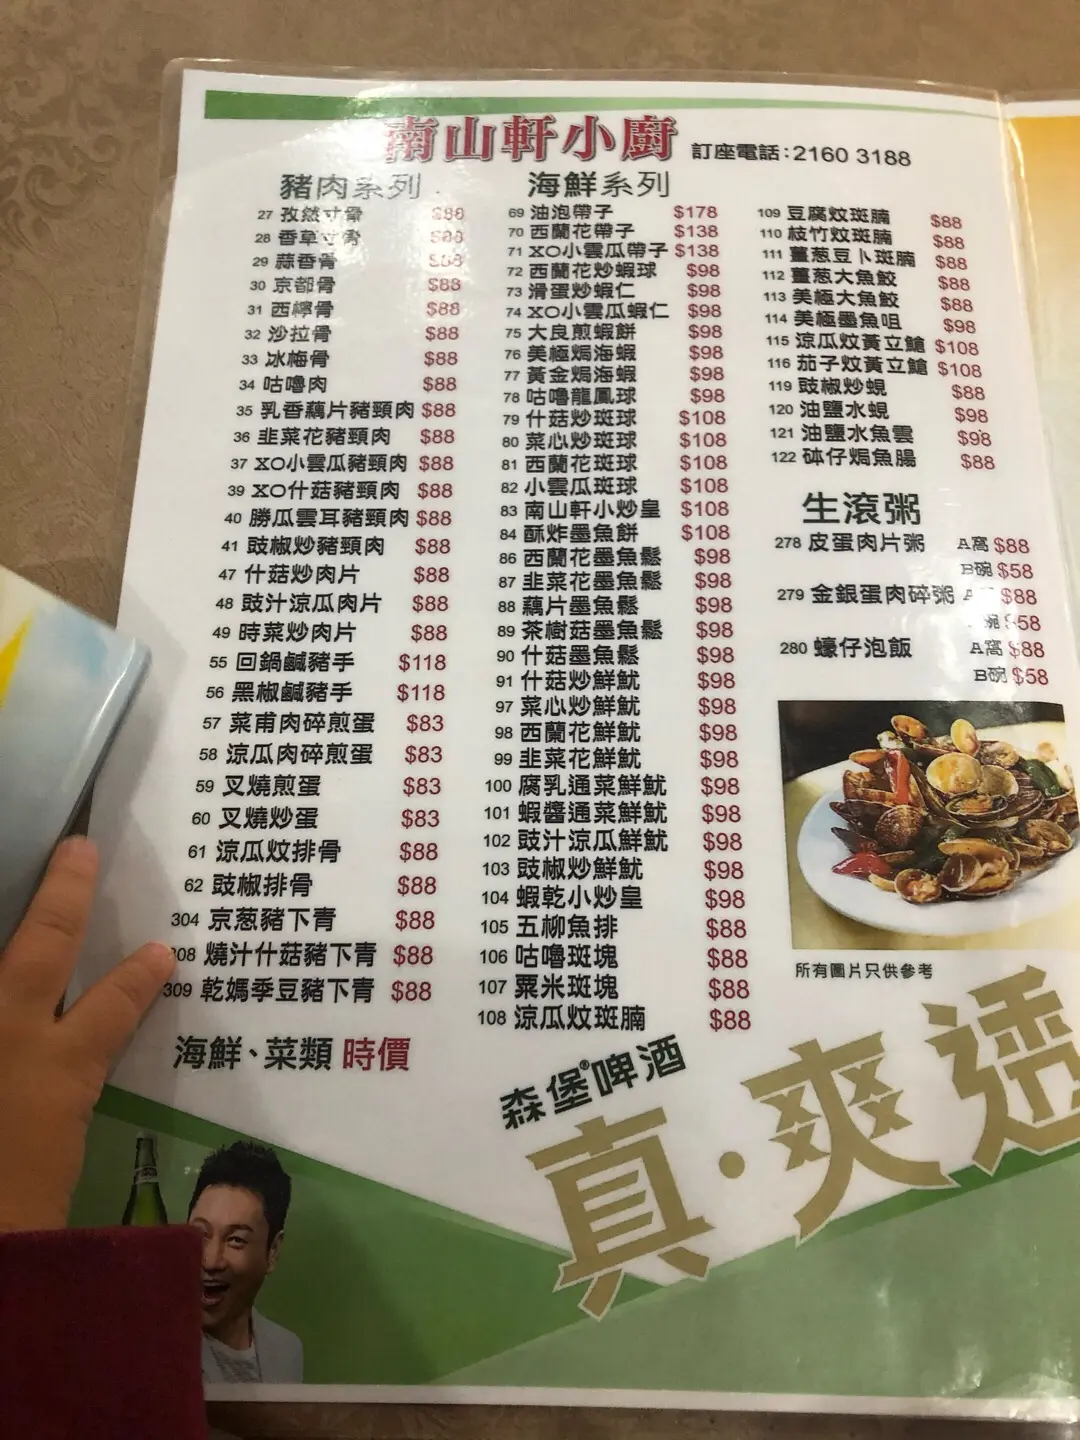 南山軒小廚
訂座電話:2160 3188
豬肉系列
27 孜然寸骨 $88
28 香草寸骨 $88
29 蒜香骨 $88
30 京都骨 $88
31 西檸骨 $88
32 沙拉骨 $88
33 冰梅骨 $88
34 咕嚕肉 $88
35 乳香藕片豬頸肉 $88
36 韭菜花豬頸肉 $88
37 XO小雲瓜豬頸肉 $88
39 XO什菇豬頸肉 $88
40 勝瓜雲耳豬頸肉 $88
41 豉椒炒豬頸肉 $88
47 什菇炒肉片 $88
48 豉汁涼瓜肉片 $88
49 時菜炒肉片 $88
55 回鍋鹹豬手 $118
56 黑椒鹹豬手 $118
57 菜甫肉碎煎蛋 $83
58 涼瓜肉碎煎蛋 $83
59 叉燒煎蛋 $83
60 叉燒炒蛋 $83
61 涼瓜炆排骨 $88
62 豉椒排骨 $88
304 京葱豬下青 $88
308 燒汁什菇豬下青 $88
309 乾媽季豆豬下青 $88
海鮮、菜類 時價
海鮮系列
69 油泡帶子 $178
70 西蘭花帶子 $138
71 XO小雲瓜帶子 $138
72 西蘭花炒蝦球 $98
73 滑蛋炒蝦仁 $98
74 XO小雲瓜蝦仁 $98
75 大良煎蝦餅 $98
76 美極焗海蝦 $98
77 黃金焗海蝦 $98
78 咕嚕龍鳳球 $98
79 什菇炒斑球 $108
80 菜心炒斑球 $108
81 西蘭花斑球 $108
82 小雲瓜斑球 $108
83 南山軒小炒皇 $108
84 酥炸墨魚餅 $108
86 西蘭花墨魚鬆 $98
87 韭菜花墨魚鬆 $98
88 藕片墨魚鬆 $98
89 茶樹菇墨魚鬆 $98
90 什菇墨魚鬆 $98
91 什菇炒鮮魷 $98
97 菜心炒鮮魷 $98
98 西蘭花鮮魷 $98
99 韭菜花鮮魷 $98
100 腐乳通菜鮮魷 $98
101 蝦醬通菜鮮魷 $98
102 豉汁涼瓜鮮魷 $98
103 豉椒炒鮮魷 $98
104 蝦乾小炒皇 $98
105 五柳魚排 $88
106 咕嚕斑塊 $88
107 粟米斑塊 $88
108 涼瓜炆斑腩 $88
109 豆腐炆斑腩 $88
110 枝竹炆斑腩 $88
111 薑葱豆卜斑腩 $88
112 薑葱大魚鮫 $88
113 美極大魚鮫 $88
114 美極墨魚咀 $98
115 涼瓜炆黃立鯧 $108
116 茄子炆黃立鯧 $108
119 豉椒炒蜆 $88
120 油鹽水蜆 $98
121 油鹽水魚雲 $98
122 砵仔焗魚腸 $88
生滾粥
278 皮蛋肉片粥 A窩 $88
B碗 $58
279 金銀蛋肉碎粥 A $88
碗 $58
280 蠔仔泡飯 A窩 $88
B碗 $58
所有圖片只供參考
森堡®啤酒
真·爽透